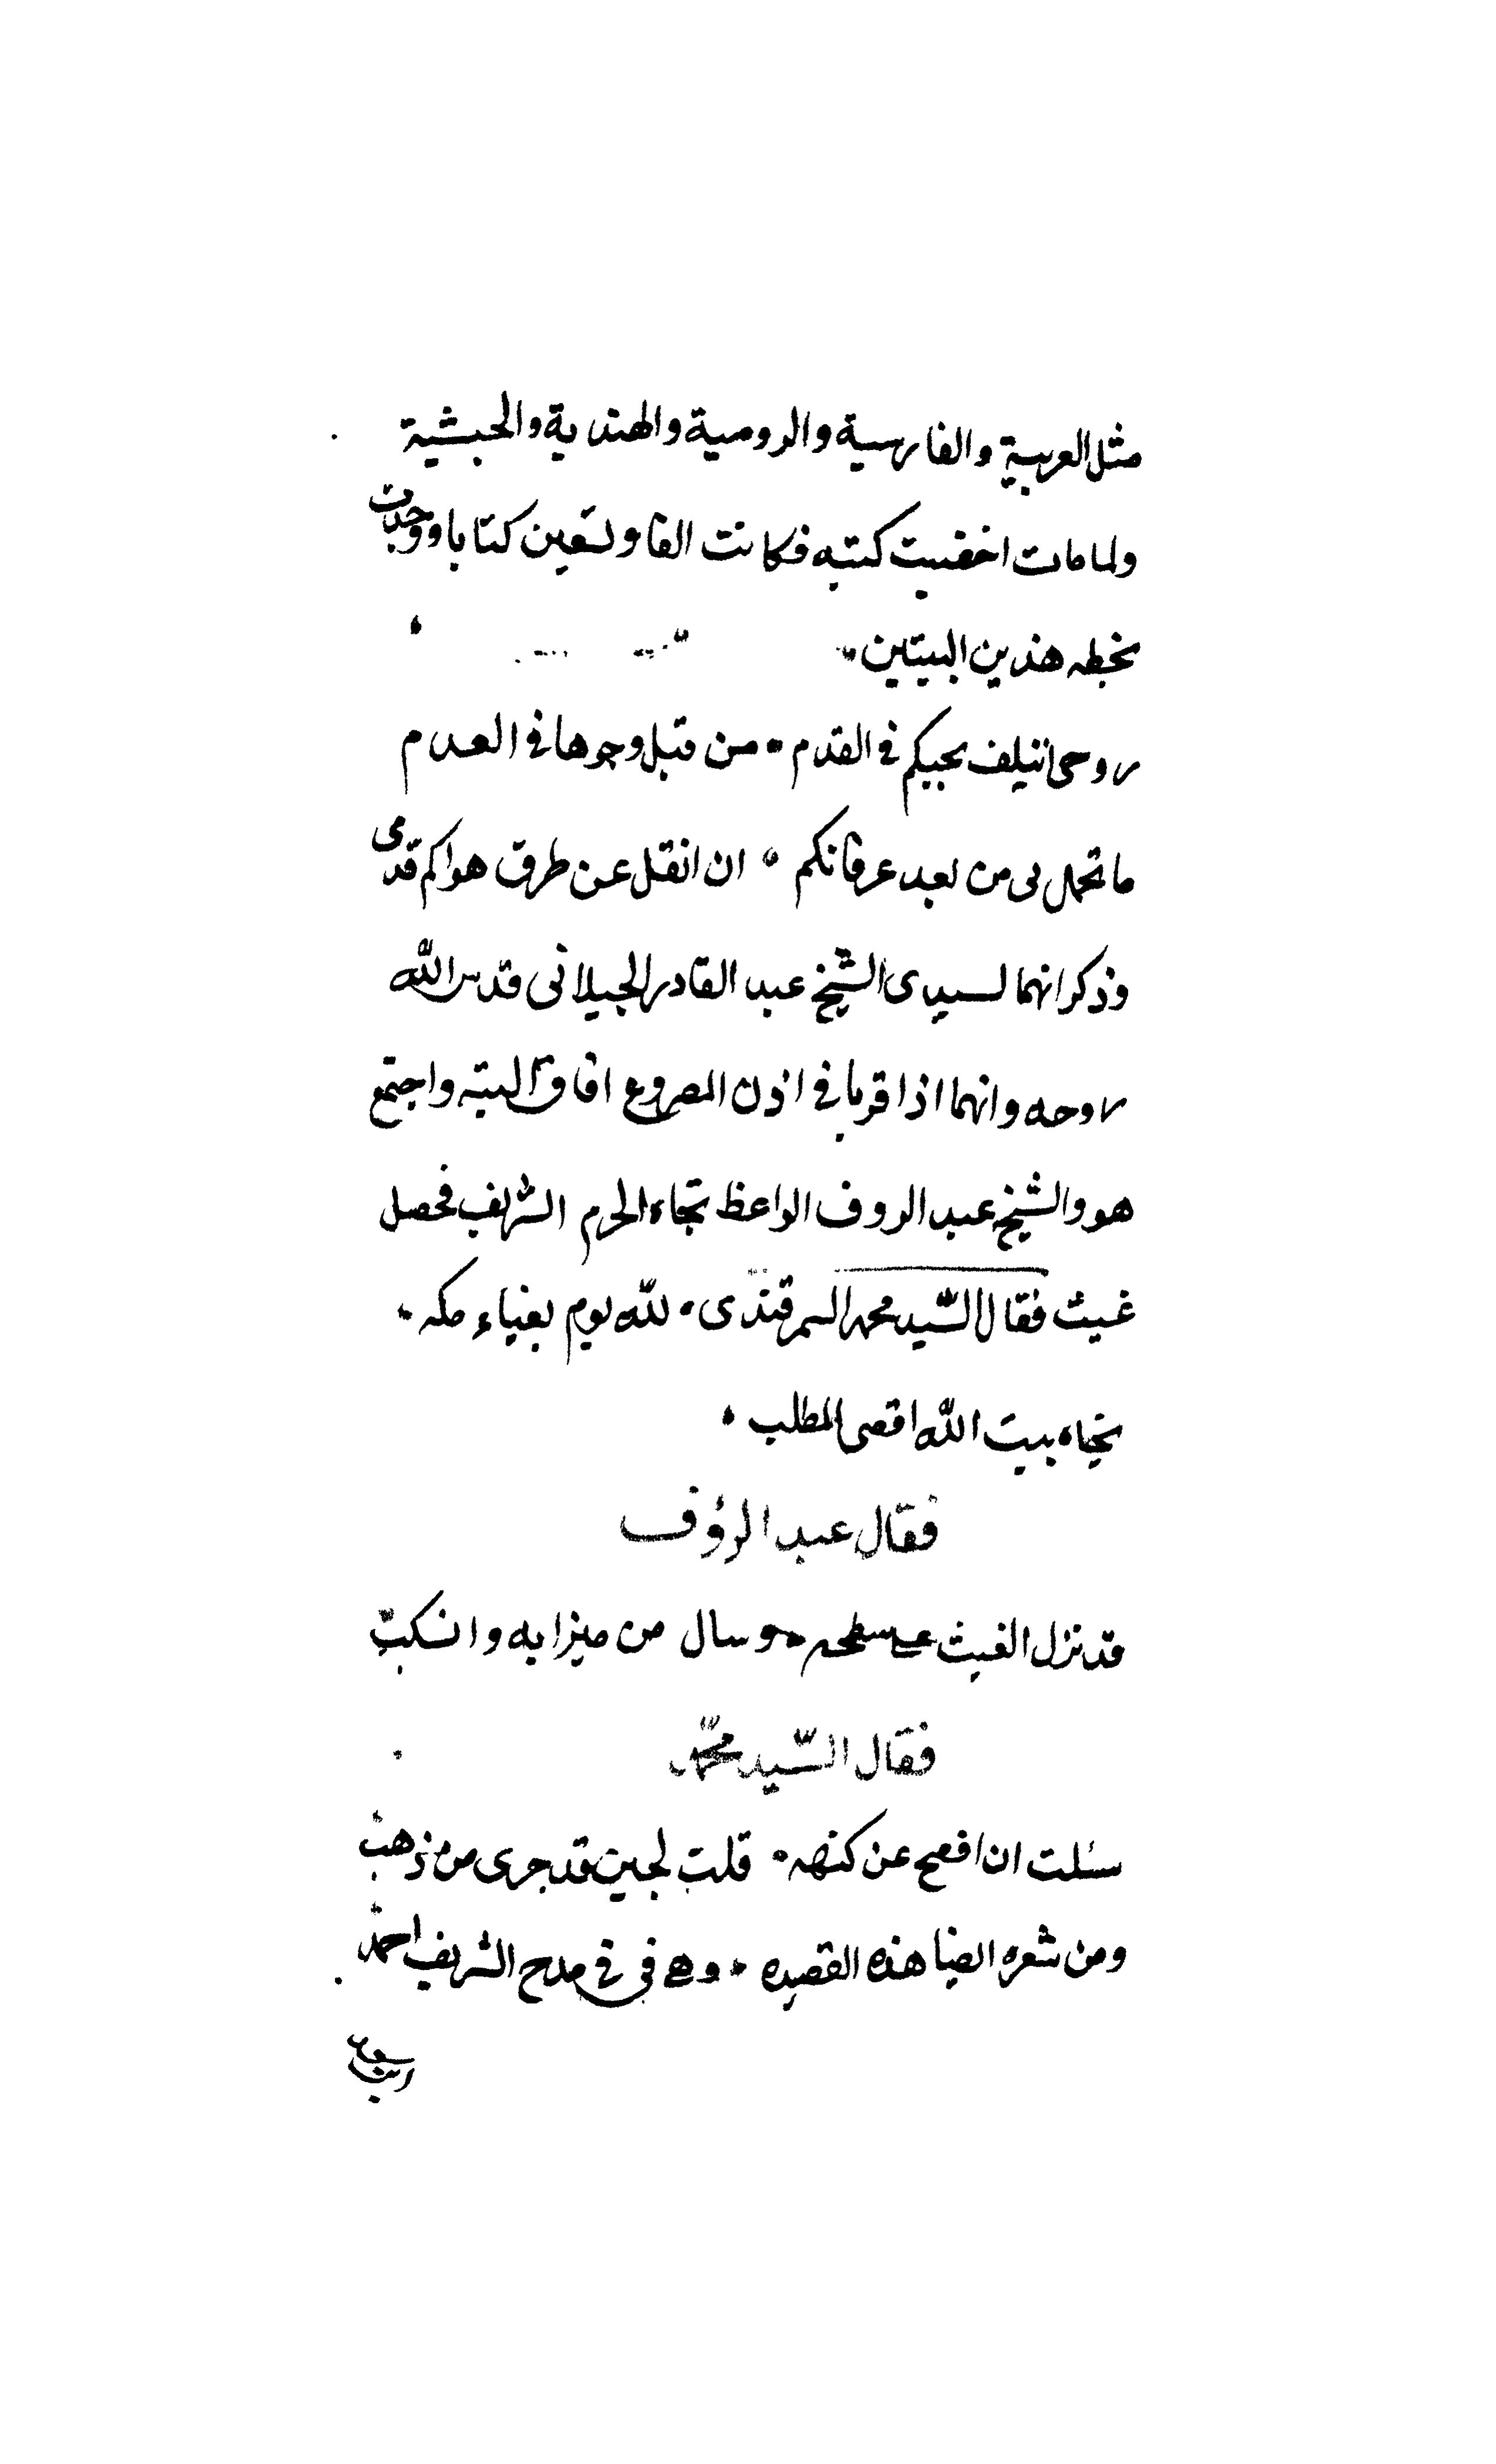 مثل العربية والفارسية والرومية والهندية والحبشية
ولما مات اخفيت كتبه فكانت الفا وتسعين كتابا ووجدت
بخطه هذين البيتين
روحى ائتلف بحبكم فى القدم من قبل وجوها فى العدم
ما تحمل بى من بعد عرفانكم ان انقل عن طرق هواكم قدمى
وذكر انهما لسيدى الشيخ عبد القادر الجيلانى قدس الله
روحه وانهما اذا قربا فى اذن المصروع افاق البتة واجتمع
هو والشيخ عبد الروف الواعظ تجاه الحرم الشريف فحصل
غيث فقال السّيد محمد السمرقندى لله يوم بفناء مكه
تجاه بيت الله اقصى المطلب
فقال عبد الرؤف
قد نزل الغيث على سطحه وسال من ميزابه وانسكب
فقال السّيد محمّد
سئلت ان افصح عن كنهه قلت لجين قد جرى من ذهب
ومن شعره ايضا هذه القصيده وهى فى فى مدح الشريف احمد
ابن